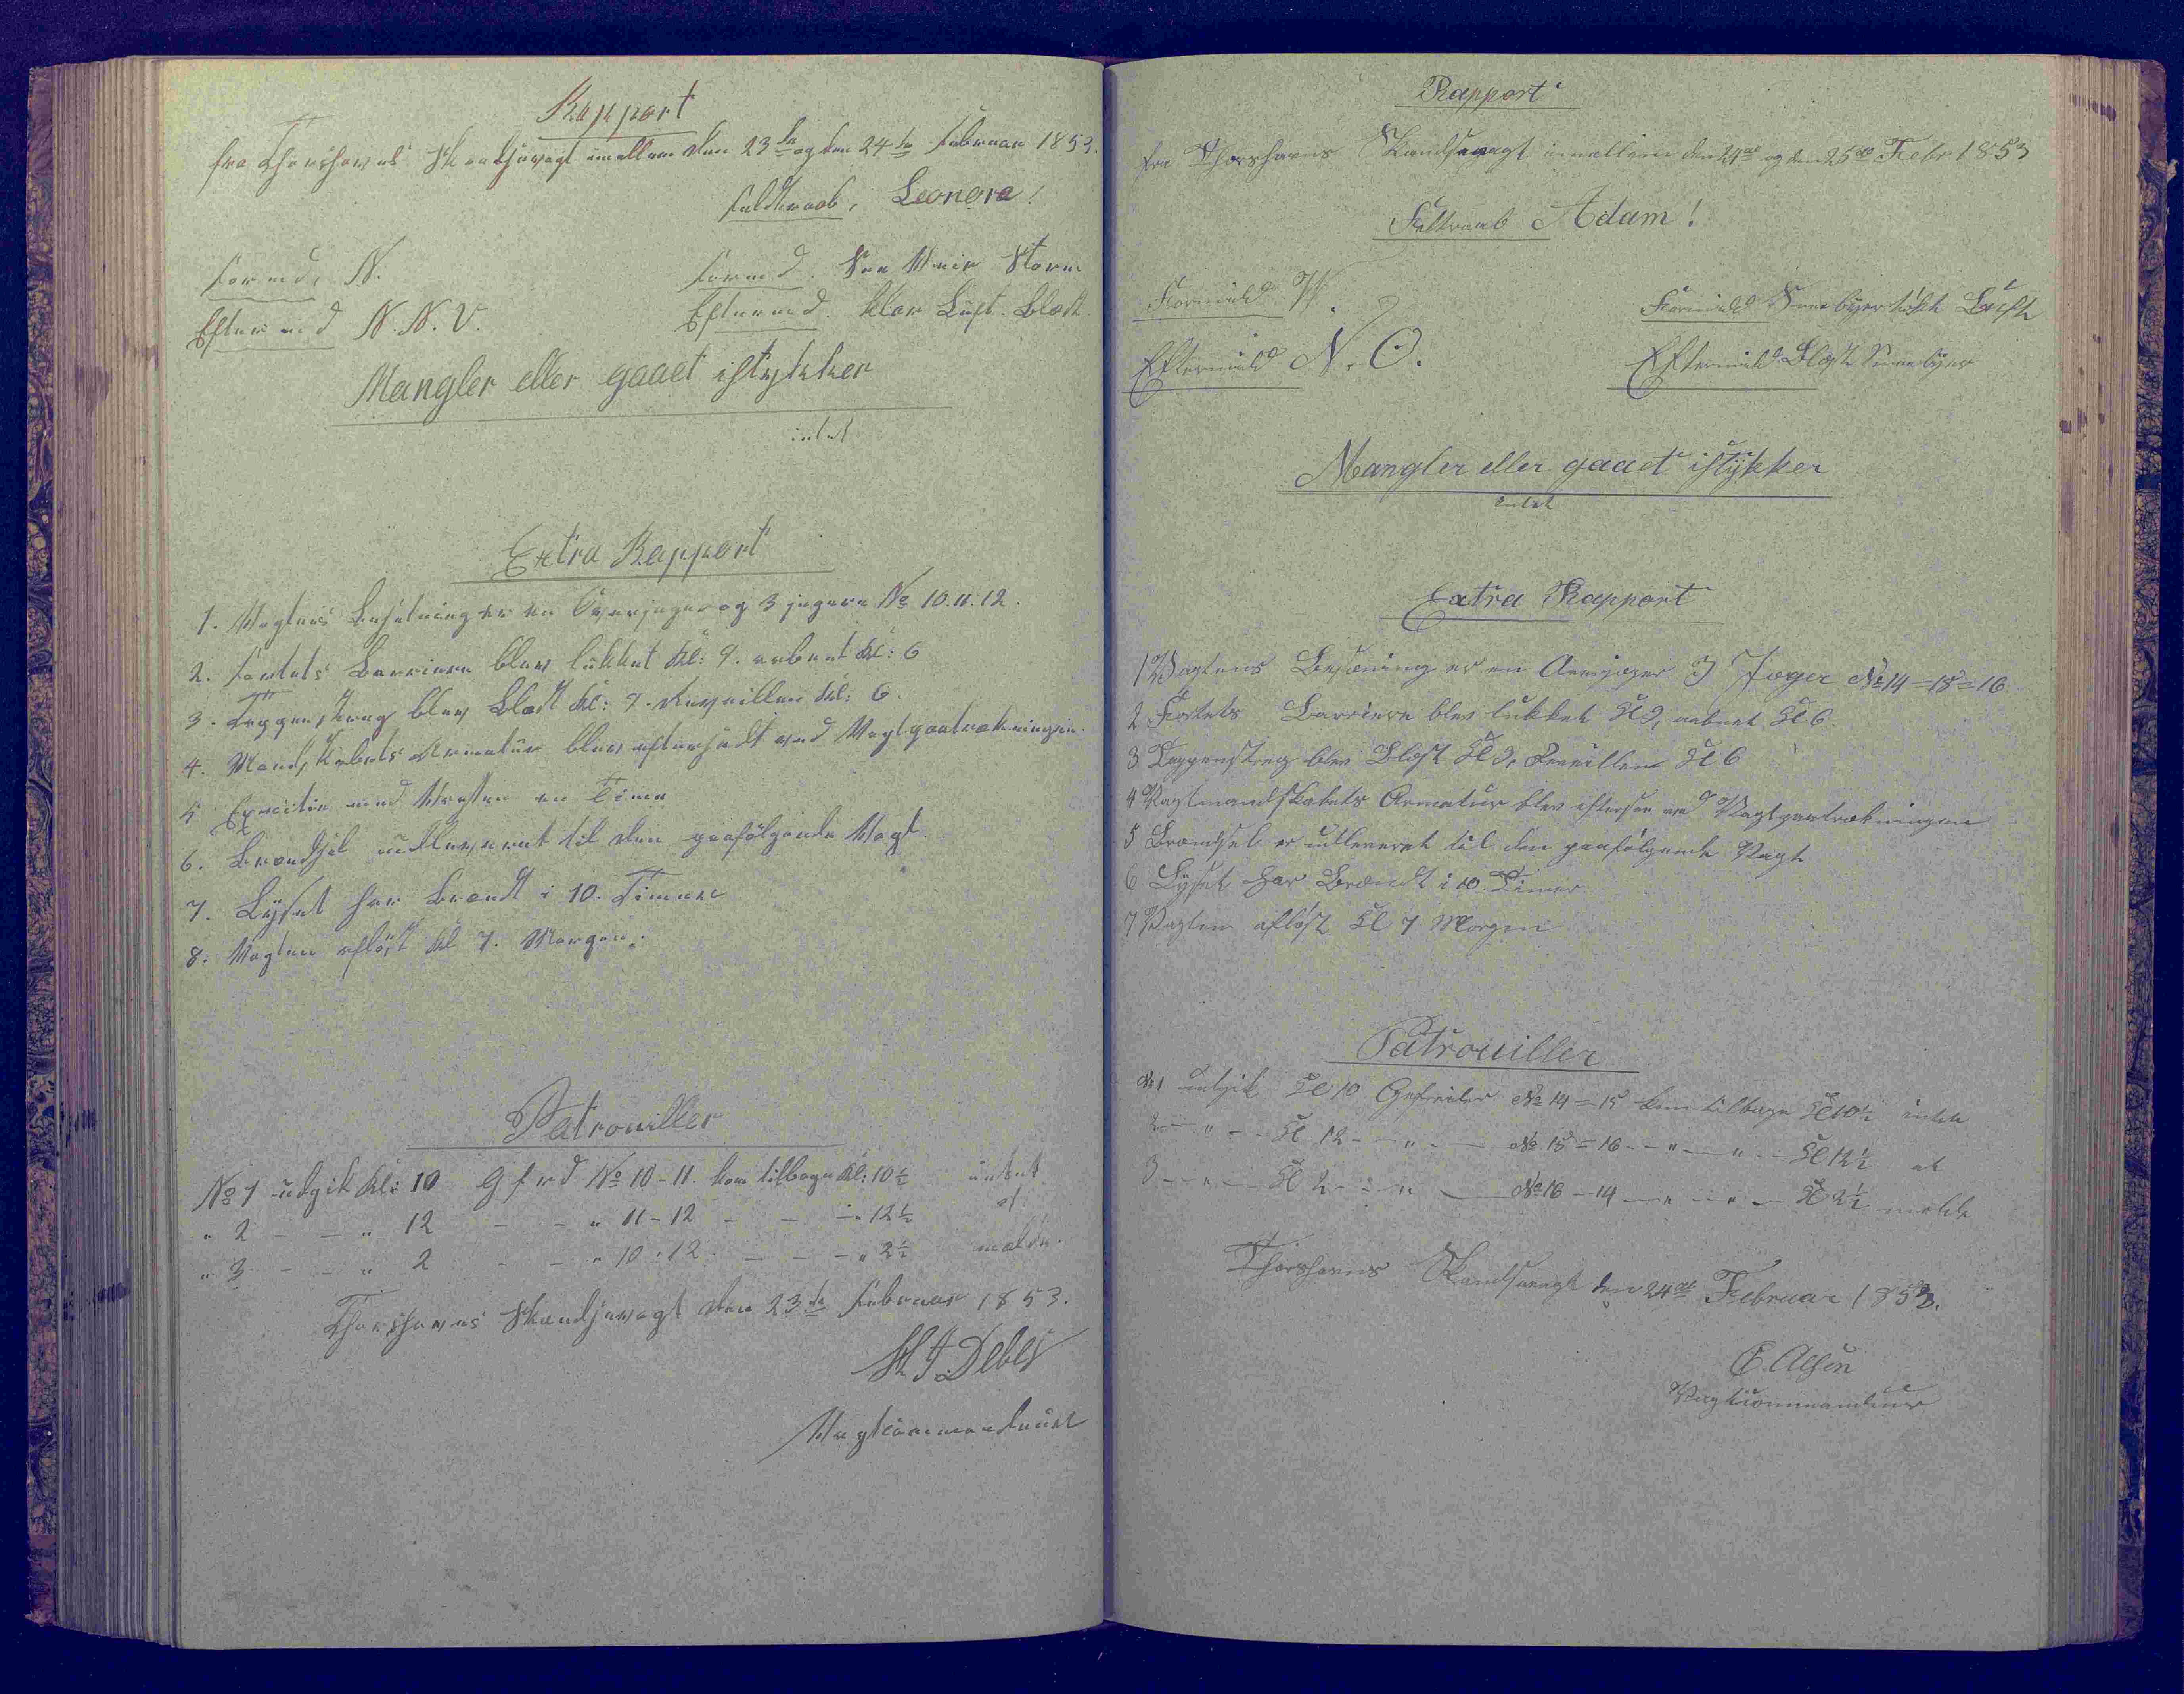 Rapport
fra Thorshavns Skandsevagt imellem den 23de og den 24de Februar 1853.
Feldtraab, Leonora!
Formd. N.
Formd. Snee Veir Storm
Eftermd N. N. V.
Eftermd. klar Luft. Blæst
Mangler eller gaaet istykker
intet
Extra Rapport
1. Vagtens Besetning er en Overjæger og 3 jægere No 10. 11. 12.
2. Fortets Barriere blev lukket Kl: 9. aabnet Kl: 6
3. Tappenstreg blev Blæst Kl: 9. Reveillen Kl: 6.
4. Mandskabets Armatur blev efterseet ved Vagtpaatrækningen.
5 Exercitie med Vagten en Time
6. Brændsel udleveret til den paafølgende Vagt.
7. Lyset har brændt i 10. Timer
8. Vagten afløst Kl 7. Morgen.
Patrouiller
No 1 udgik Kl: 10 Gfrd No 10-11. kom tilbage Kl: 10½ intet
" 2 - - " 12 - - " 11-12 - - - " 12½ at
" 3 - - " 2 - - " 10-12 - - - " 2½ melde.
Thorshavns Skandsevagt den 23de Februar 1853.
Debes
Vagtcommandeur
Rapport
fra Thorshavns Skandsevagt imellem den 24de og den 25de Febr 1853
Feltraab Adam!
Formidd V.
Formidd Sneebyer tÿk Luft
Eftermidd N. O.
Eftermidd Blæst Sneebyer
Mangler eller gaaet istÿkker
Intet
Extra Rapport
1 Vagtens Besætning er en Overjæger 3 Jæger No 14=15=16
2 Fortets Barriere blev lukket Kl 9, aabnet Kl 6.
3 Tappenstreg blev Blæst Kl 9, Reveillen Kl 6
4 Vagtmandskabets Armatur blev efterseet ved Vagtpaatrækningen
5 Brændsel er udleveret til den paafølgende Vagt
6 Lyset har Brændt i 10 Timer
7 Vagten afløst Kl 7 Morgen
Patrouiller
No 1 udgik Kl 10 Gefreider No 14=15 kom tilbage Kl 10½ intet
2 - " - - Kl 12 - - " - - No 15=16 - - " - - " - - Kl 12½ at
3 - - " - - Kl 2 - - " - No 16-14 - - " - - " - Kl 2½ melde
Thorshavns Skandsevagt den 24de Februar 1853.
Vagtcommandeur